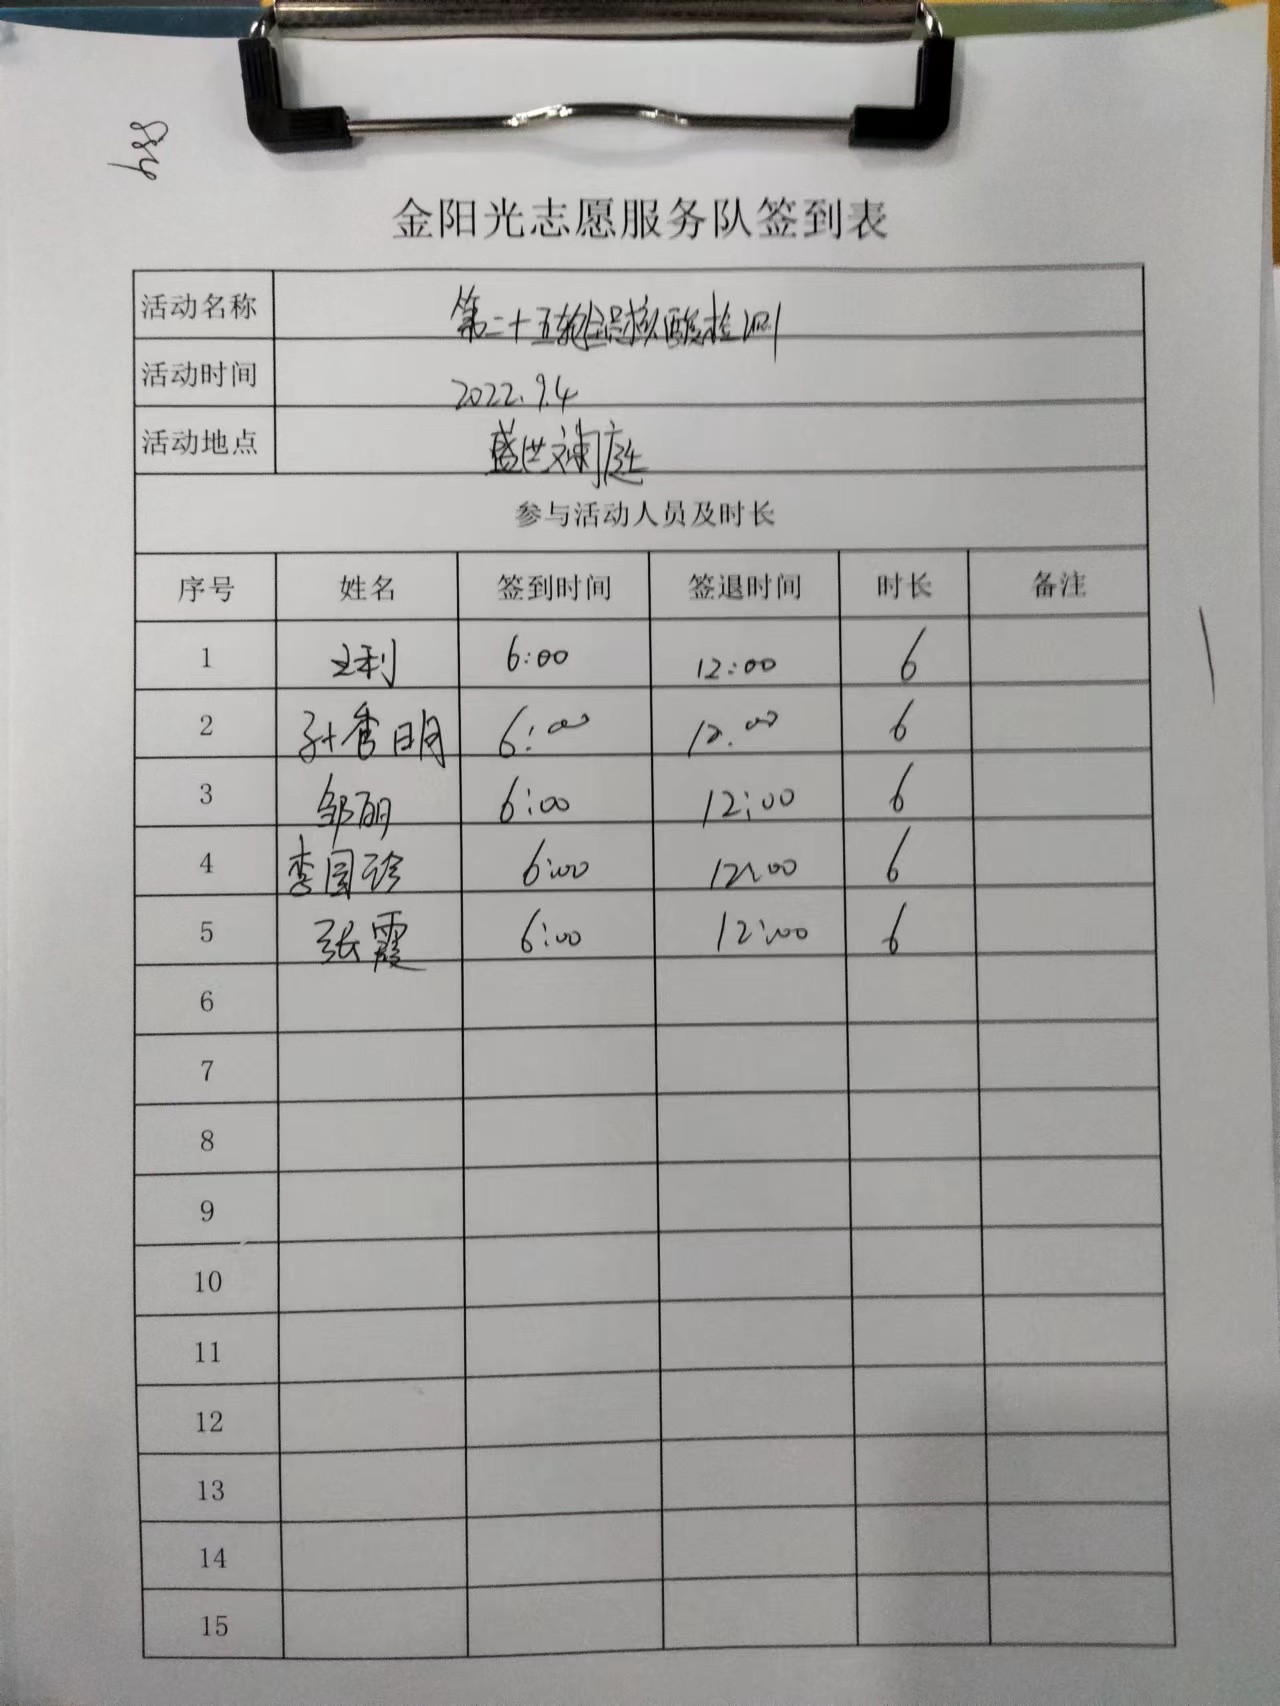 金阳光志愿服务队签到表
活动名称 第二十五轮全员核酸检测
活动时间 2022.9.4
活动地点 盛世文澜庭
参与活动人员及时长
序号 姓名 签到时间 签退时间 时长 备注
1 王利 6:00 12:00 6
2 孙香明 6:00 12:00 6
3 邹丽 6:00 12:00 6
4 李国珍 6:00 12:00 6
5 张霞 6:00 12:00 6
6
7
8
9
10
11
12
13
14
15